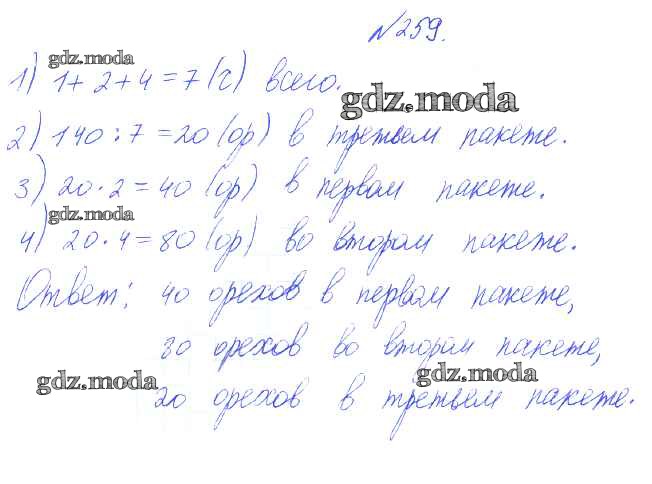 №259.
gdz.moda
1) 1+2+4=7(ч) всего.
gdz.moda
2) 140:7=20(ор) в третьем пакете.
3) 20·2=40(ор) в первом пакете.
gdz.moda
4) 20·4=80(ор) во втором пакете.
Ответ: 40 орехов в первом пакете,
80 орехов во втором пакете,
gdz.moda
gdz.moda
20 орехов в третьем пакете.